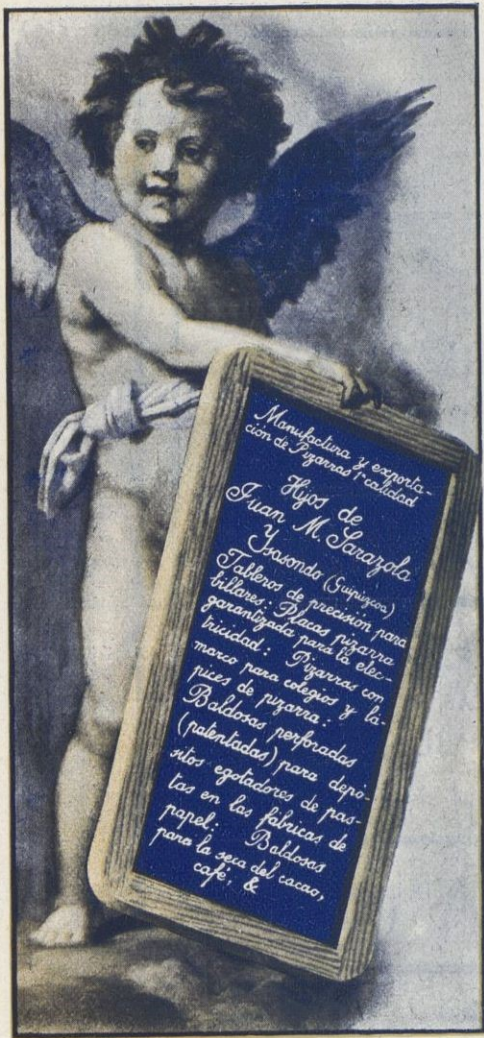 Manufactura y exporta-
ción de Pizarras 1ª calidad
Hijos de
Juan M. Sarazola
Ysasondo (Guipúzcoa)
Tableros de precisión para
billares: Placas pizarra
garantizada para la elec-
tricidad: Pizarras con
marco para colegios y lá-
pices de pizarra:
Baldosas perforadas
(patentadas) para depó-
sitos agotadores de pas-
tas en las fábricas de
papel: Baldosas
para la seca del cacao,
café, &